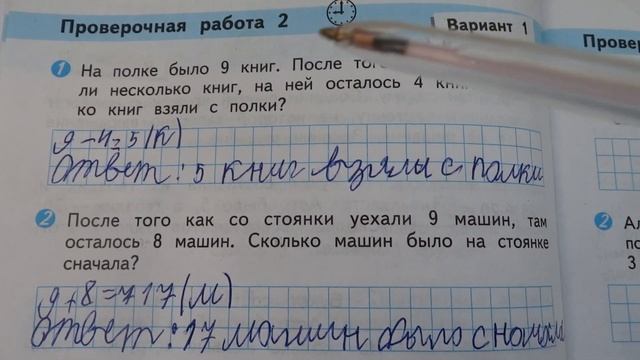 Проверочная работа 2
Вариант 1
1 На полке было 9 книг. После
ли несколько книг, на ней осталось 4
ко книг взяли с полки?
9-4=5(к)
Ответ: 5 книг взяли с полки
2 После того как со стоянки уехали 9 машин, там
осталось 8 машин. Сколько машин было на стоянке
сначала?
9+8=717(м)
Ответ: 17 машин было сначала
2
3